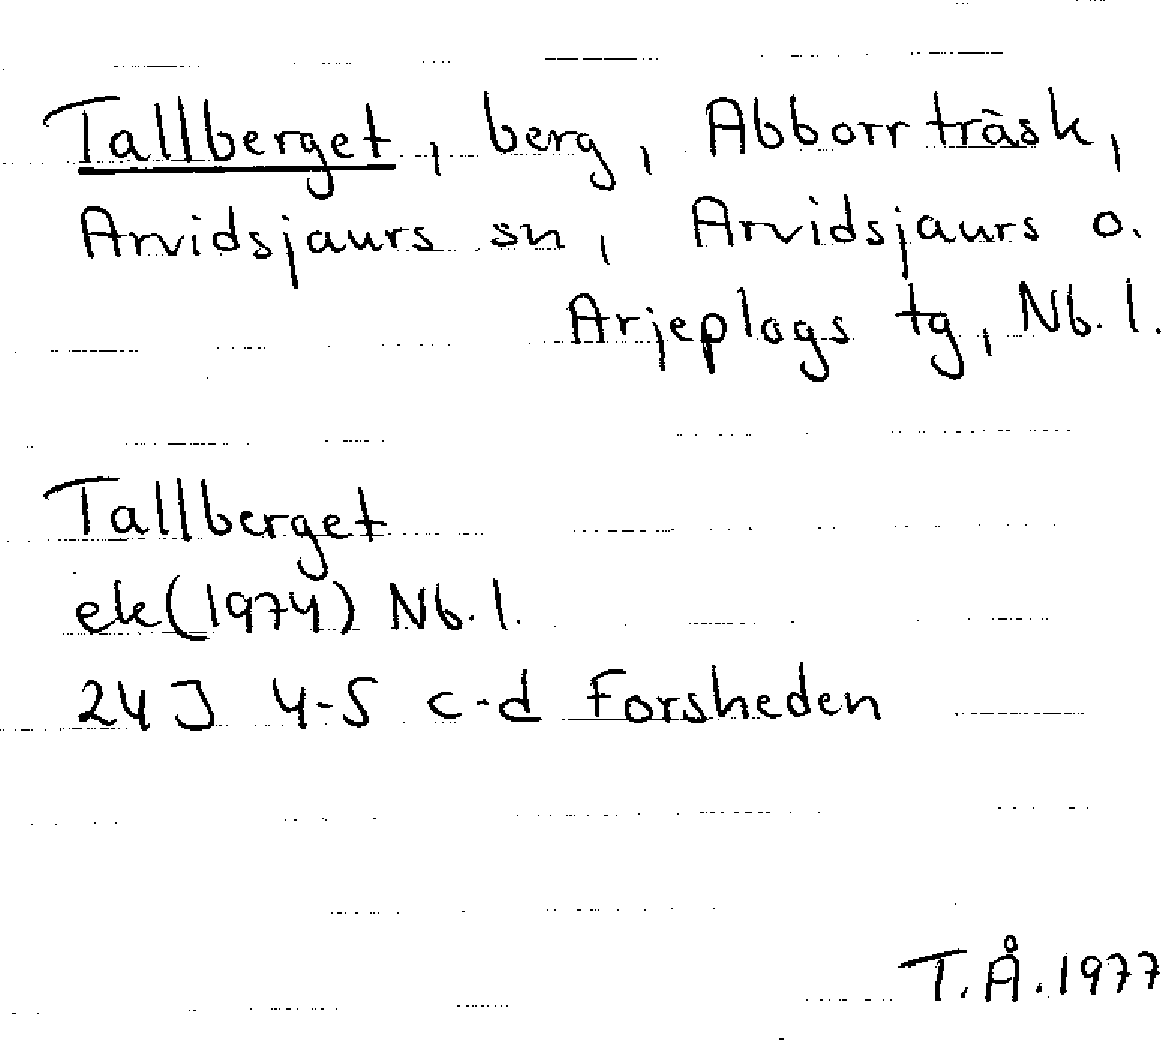 Tallberget, berg, Abborrträsk,
Arvidsjaurs sn, Arvidsjaurs o.
Arjeplogs tg, Nb. l.
Tallberget
ek(1974) Nb. l.
24J 4-5 c-d Forsheden
T.Å.1977